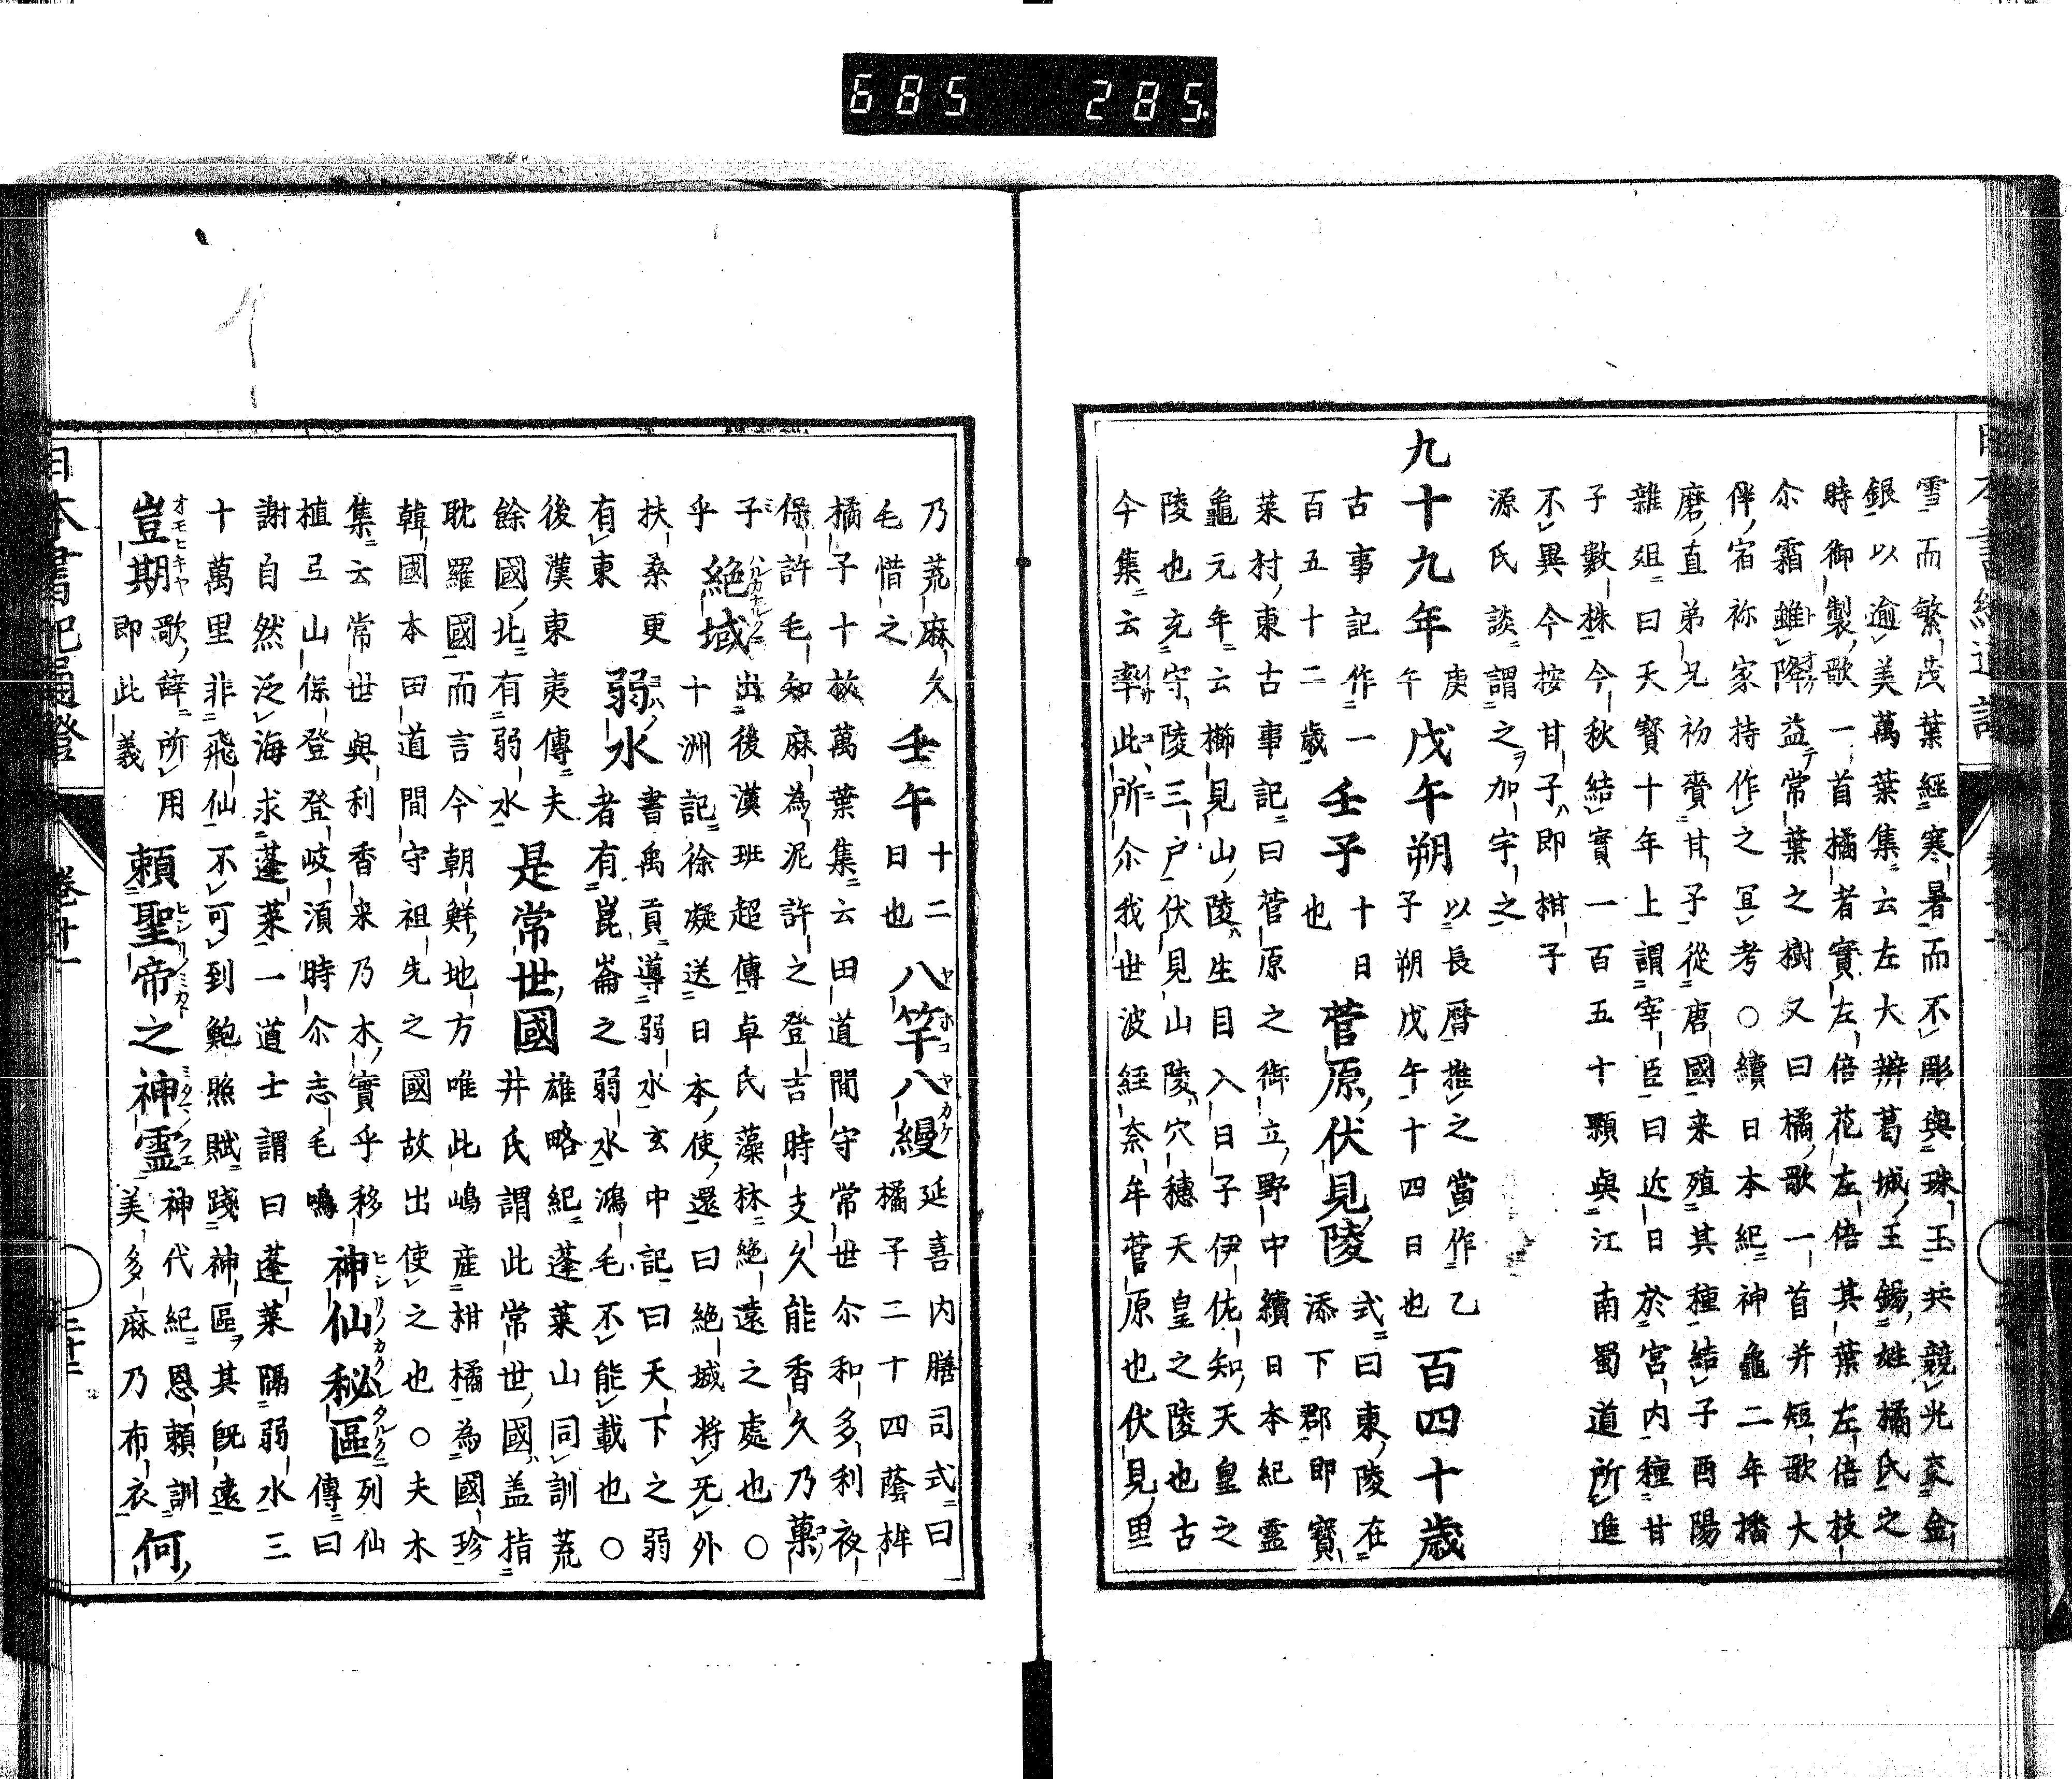 685 285
雪而繁茂葉經寒暑而不彫與珠玉共競光交金
銀以逾美萬葉集云左大辨葛城王錫姓橘氏之
時御製歌一首橘者實左倍花左倍其葉左倍枝
尒霜雖降益常葉之樹又曰橘歌一首并短歌大
伴宿祢家持作之冝考○續日本紀神龜二年播
磨直弟兄初賷甘子從唐國来殖其種結子酉陽
雜俎曰天寳十年上謂宰臣曰近日於宮内種甘
子數株今秋結實一百五十顆與江南蜀道所進
不異今按甘子即柑子
源氏談謂之加宇之
九十九年庚午戊午朔以長暦推之當作乙子朔戊午十四日也百四十歳
古事記作一百五十二歳壬子十日也菅原伏見陵式曰東陵在添下郡即寳
萊村東古事記曰菅原之御立野中續日本紀霊
龜元年云櫛見山陵生目入日子伊佐知天皇之
陵也充守陵三户伏見山陵穴穗天皇之陵也古
今集云率此所尒我世波經奈牟菅原也伏見里
乃荒麻久毛惜之壬午十二日也八竿八縵延喜内膳司式曰橘子二十四蔭桙
橘子十枚萬葉集云田道間守常世尒和多利夜
保許毛知麻為泥許之登吉時支久能香久乃菓
子乎絶域出後漢班超傳卓氏藻林絶遠之處也○十洲記徐凝送日本使還曰絶域將无外
扶桑更有東弱水書禹貢導弱水玄中記曰天下之弱者有崑崙之弱水鴻毛不能載也○
後漢東夷傳夫餘國北有弱水是常世國雄略紀蓬萊山同訓荒井氏謂此常世國盖指
耽羅國而言今朝鮮地方唯此嶋産柑橘為國珍
韓國本田道間守祖先之國故出使之也○夫木
集云常世與利香来乃木實乎移植弖山保登登岐湏時尒志毛鳴神仙秘區列仙傳曰
謝自然泛海求蓬萊一道士謂曰蓬萊隔弱水三
十萬里非飛仙不可到鮑照賦踐神區其旣遠
豈期歌辞所用即此義頼聖帝之神霊神代紀恩頼訓美多麻乃布衣何